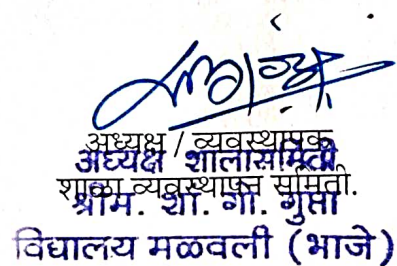 अध्यक्ष / व्यवस्थापक
अध्यक्ष शालासमिती
शाळा व्यवस्थापन समिती.
श्रीम. शा. गो. गुप्ता
विद्यालय मळवली (भाजे)